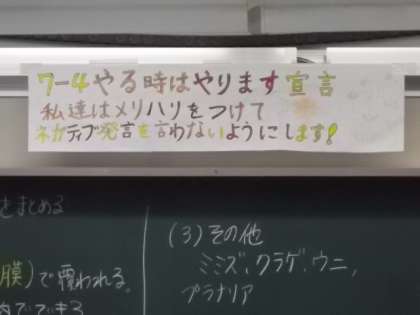 7-4やる時はやります宣言
私達はメリハリをつけて
ネガティブ発言を言わないようにします!
をまとめる
膜)で覆われる。
内でできる
(3)その他
ミミズ、クラゲ、ウニ、
プラナリア